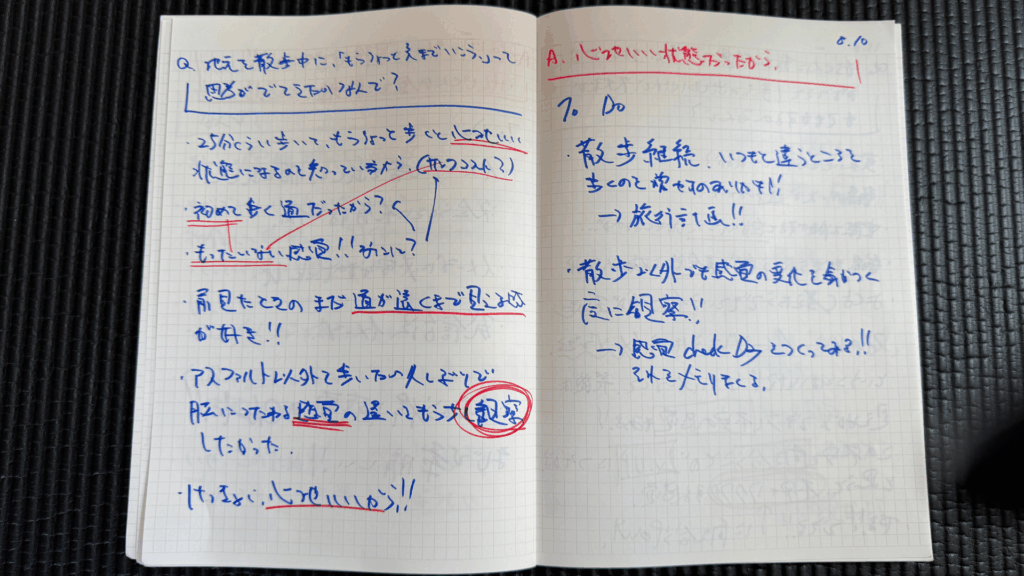 Q. 地元を散歩中に、「もうちょっと先までいこう」って
思考がでてきたのはなんで?
・25分くらい歩いて、もうちょっと歩くと心地いい
状態になるのを知っているから。(サンプラス?)
・初めて歩く道だったから?
・もったいない感覚!!なんに?
・前見たときの まだ道が遠くまで見える感
が好き!!
・アスファルト以外を歩いたの久しぶりで
脳につたわる感覚の違いをもう少し観察
したかった.
・けっきょく、心地いいから!!
8.10
A. 心地いい状態だったから.
To Do
・散歩継続. いつもと違うところを
歩くのを欲するのおいかも!!
→ 旅行計画!!
・散歩以外でも感覚の変化を気がつく
度に観察!!
→ 感覚 check Day をつくってみる!!
それでメモりまくる.